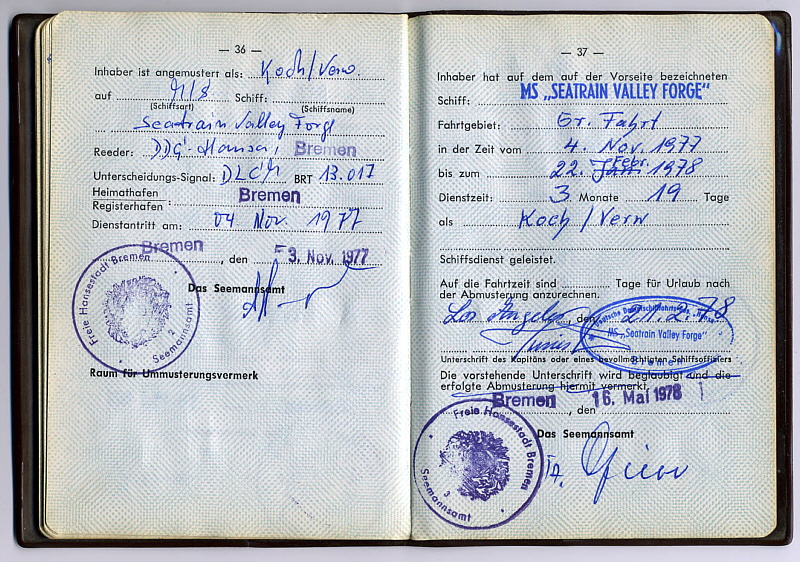 — 36 —
Inhaber ist angemustert als: Koch/Verw.
auf M/S Schiff:
(Schiffsart) (Schiffsname)
Seatrain Valley Forge
Reeder: DDG-Hansa, Bremen
Unterscheidungs-Signal: DLCM BRT 13.017
Heimathafen
Registerhafen : Bremen
Dienstantritt am: 04 Nov. 1977
Bremen, den 3. Nov. 1977
Das Seemannsamt
Freie Hansestadt Bremen
Seemannsamt
2
Raum für Ummusterungsvermerk
— 37 —
Inhaber hat auf dem auf der Vorseite bezeichneten
Schiff: MS „SEATRAIN VALLEY FORGE"
Fahrtgebiet: Gr. Fahrt
in der Zeit vom 4. Nov. 1977
bis zum 22. Febr. 1978
Dienstzeit: 3 Monate 19 Tage
als Koch/Verw
Schiffsdienst geleistet.
Auf die Fahrtzeit sind Tage für Urlaub nach
der Abmusterung anzurechnen.
Los Angeles, den 21.2.78
MS „Seatrain Valley Forge"
Bremen
Unterschrift des Kapitäns oder eines bevollmächtigten Schiffsoffiziers
Die vorstehende Unterschrift wird beglaubigt und die
erfolgte Abmusterung hiermit vermerkt.
Bremen, den 16. Mai 1978
Das Seemannsamt
Freie Hansestadt Bremen
Seemannsamt
3